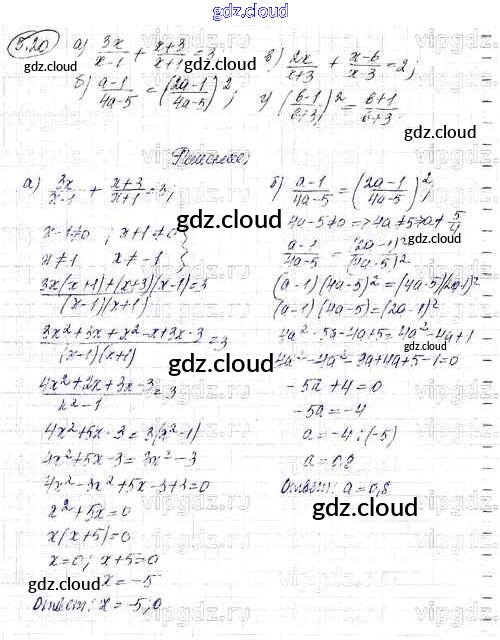 gdz.cloud
5.20 а) 3x/(x-1) + (x+3)/(x+1) = 3; в) 2x/(x+3) + (x-6)/(x-3) = 2;
б) (a-1)/(4a-5) = ((2a-1)/(4a-5))²; г) ((b-1)/(b+3))² = (b+1)/(b+3).
Решение:
а) 3x/(x-1) + (x+3)/(x+1) = 3;
x-1≠0 ; x+1≠0
x≠1 x≠-1
(3x(x+1)+(x+3)(x-1))/((x-1)(x+1)) = 3
(3x²+3x+x²-x+3x-3)/((x-1)(x+1)) = 3
(4x²+2x+3x-3)/(x²-1) = 3
4x²+5x-3=3(x²-1)
4x²+5x-3=3x²-3
4x²-3x²+5x-3+3=0
x²+5x=0
x(x+5)=0
x=0; x+5=0
x=-5
Ответ: x=-5;0
б) (a-1)/(4a-5) = ((2a-1)/(4a-5))²;
4a-5≠0 => 4a≠5 => a≠5/4
(a-1)/(4a-5) = (2a-1)²/(4a-5)²
(a-1)(4a-5)²=(4a-5)(2a-1)²
(a-1)(4a-5)=(2a-1)²
4a²-5a-4a+5=4a²-4a+1
4a²-4a²-9a+4a+5-1=0
-5a+4=0
-5a=-4
a=-4:(-5)
a=0,8
Ответ: a=0,8